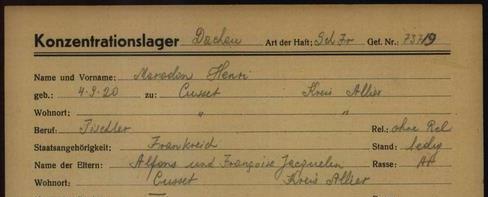 Konzentrationslager Dachau Art der Haft: Sch Fr Gef. Nr. 73719
Name und Vorname: Maradon Henri
geb.: 4.9.20 zu: Cusset Kreis Allier
Wohnort: " "
Beruf: Tischler Rel.: ohne Rel
Staatsangehörigkeit: Frankreich Stand: ledig
Name der Eltern: Alfons und Françoise Jacquelin Rasse: Ar
Wohnort: Cusset Kreis Allier